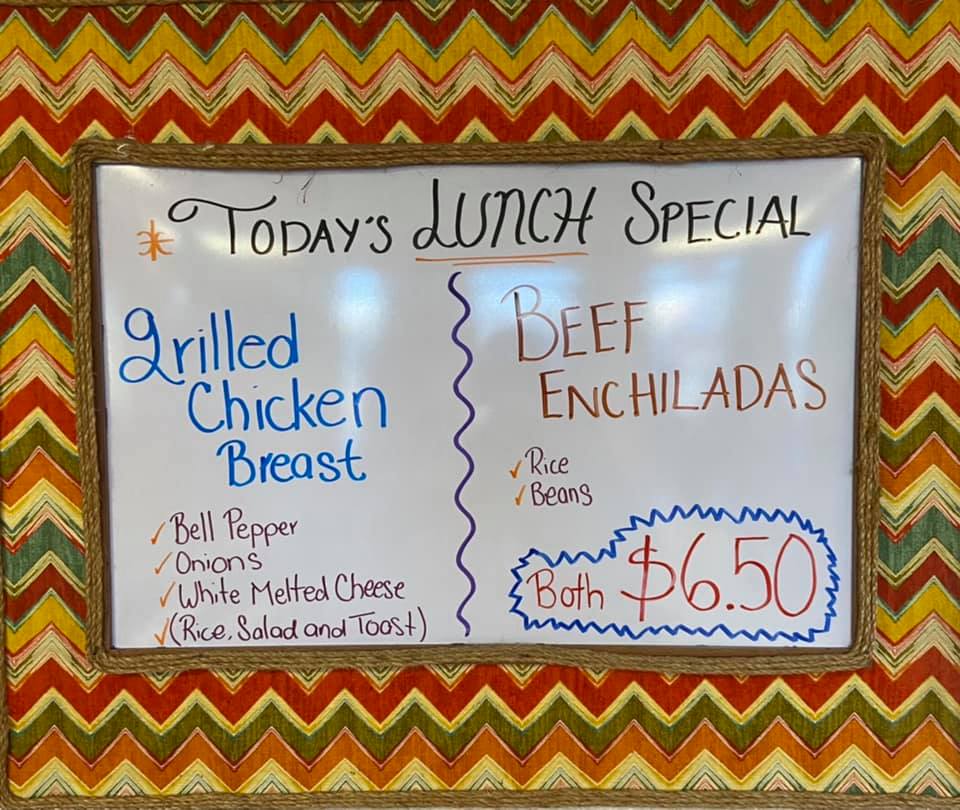 Today's Lunch Special
Grilled
Chicken
Breast
Bell Pepper
Onions
White Melted Cheese
(Rice, Salad and Toast)
Beef
Enchiladas
Rice
Beans
Both $6.50